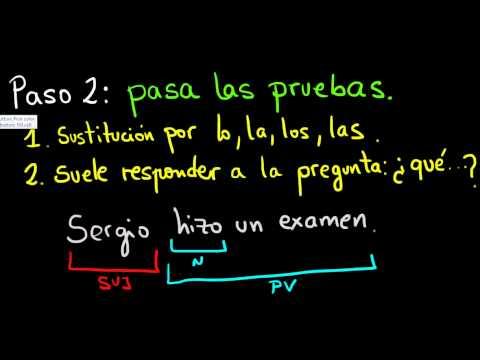 Paso 2: pasa las pruebas.
1. Sustitución por lo, la, los, las.
2. Suele responder a la pregunta: ¿qué...?
Sergio hizo un examen.
SUJ
N
PV